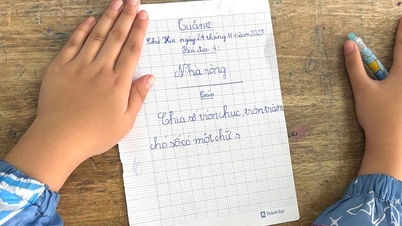 Tuần
Thứ Hai ngày 24 tháng 11 năm 2025
Bài đọc 4:
Nhà rông
Toán
Chia số tròn chục, tròn trăm
cho số có một chữ s
Thành Đạt